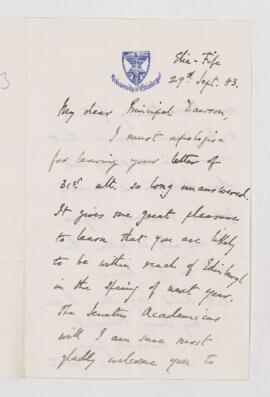 University of Edinburgh
Elie - Fife
29th Sept. 83.
My dear Principal Dawson,
I must apologise
for leaving your letter of
31st ult. so long unanswered.
It gives me great pleasure
to learn that you are likely
to be within reach of Edinburgh
in the Spring of next year.
The Senatus Academicus
will I am sure most
gladly welcome you to
3